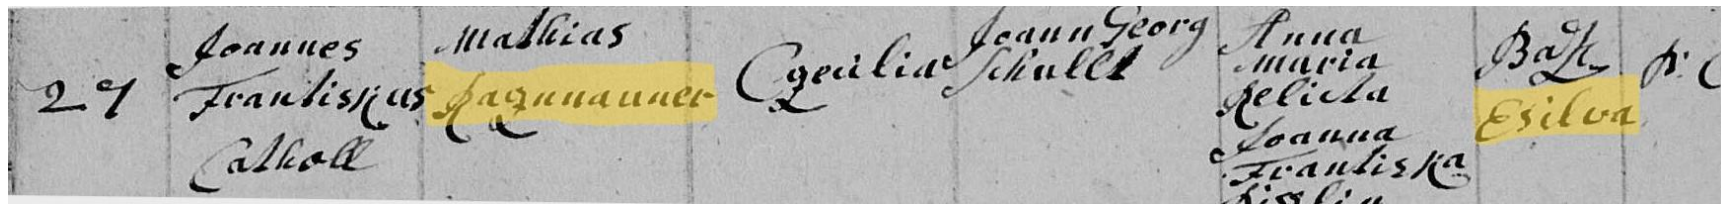 27
Joannes
Frantiskus
Catholl
Mathias
Caecilia
Joann Georg
Schullt
Anna
Maria
Relicta
Joanna
Frantiska
E Silva